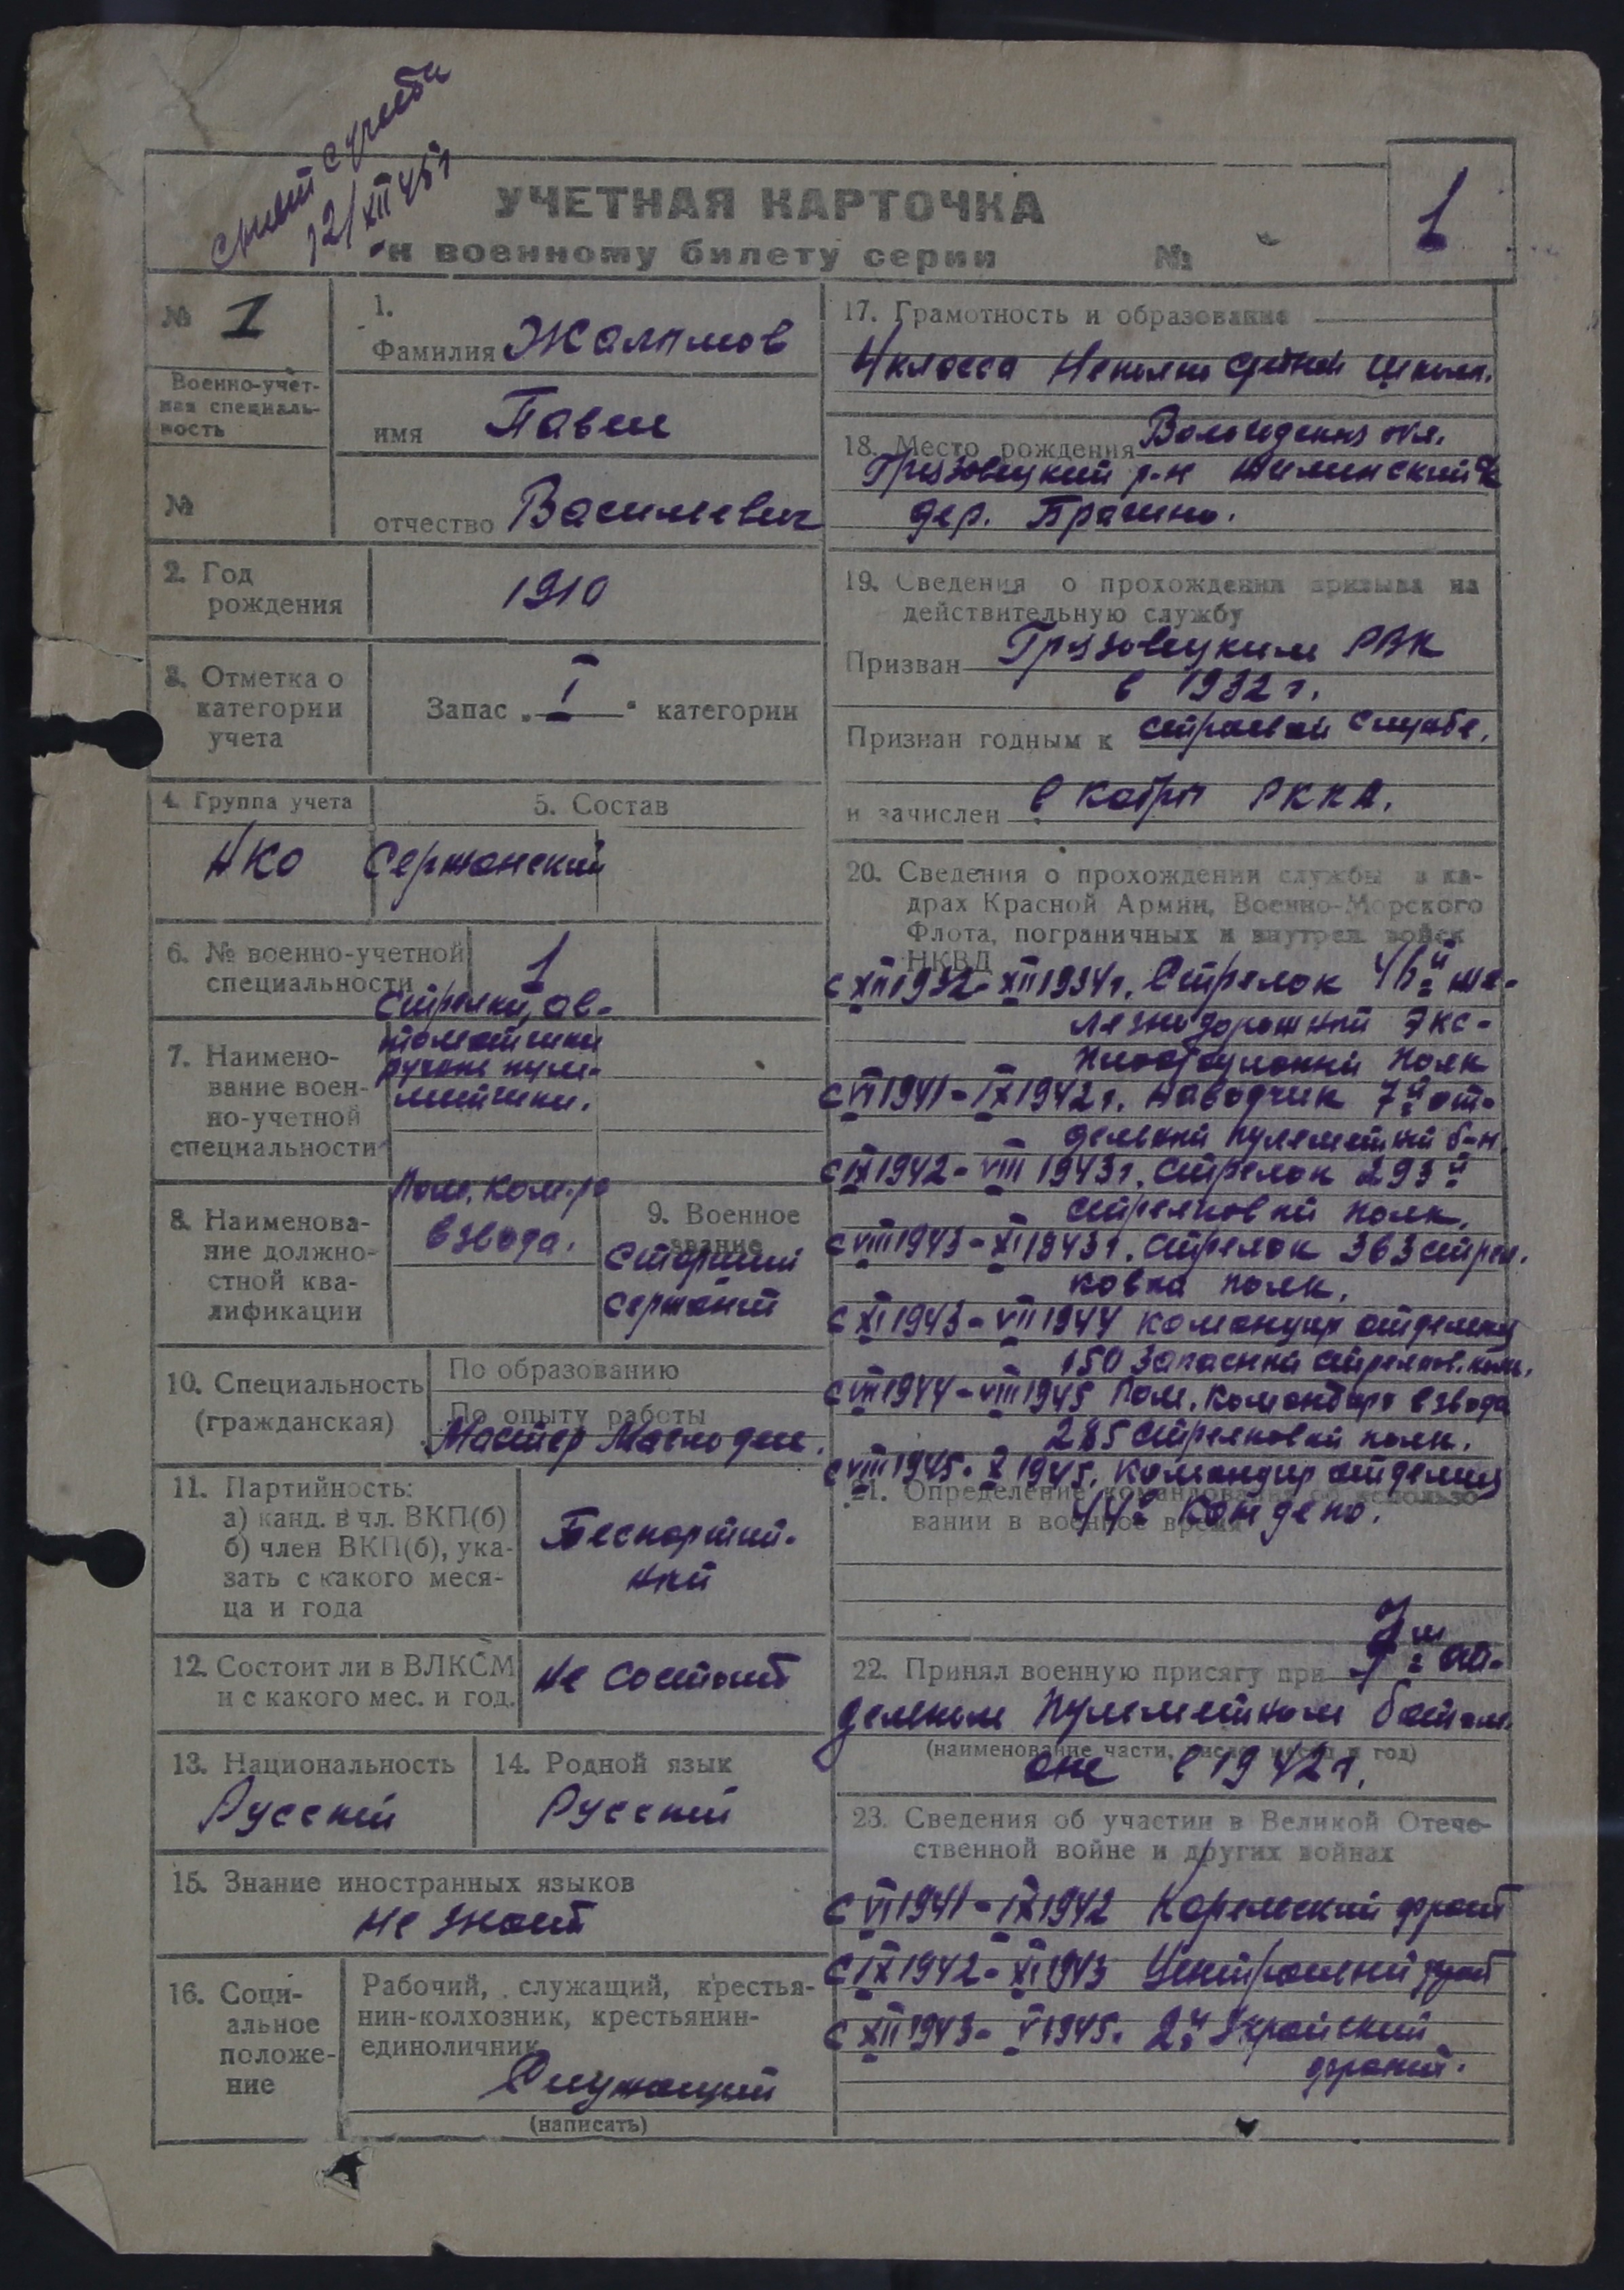 12/XII 45г
УЧЕТНАЯ КАРТОЧКА
к военному билету серии №
1
№ 1
Военно-учет-
ная специаль-
ность
№
1.
Фамилия
имя Павел
отчество Васильевич
2. Год
рождения
1910
3. Отметка о
категории
учета
Запас „ I " категории
4. Группа учета
НКО
5. Состав
Сержанский
6. № военно-учетной
специальности
1
7. Наимено-
вание воен-
но-учетной
специальности
Стрелки, ав-
томатчики
ручные пуле-
метчики.
8. Наименова-
ние должно-
стной ква-
лификации
Пом. ком-ра
взвода.
9. Военное
звание
Старший
сержант
10. Специальность
(гражданская)
По образованию
По опыту работы
Мастер Маслодел.
11. Партийность:
а) канд. в чл. ВКП(б)
б) член ВКП(б), ука-
зать с какого меся-
ца и года
Беспартий-
ный
12. Состоит ли в ВЛКСМ
и с какого мес. и год.
Не состоит
13. Национальность
Русский
14. Родной язык
Русский
15. Знание иностранных языков
не знает
16. Соци-
альное
положе-
ние
Рабочий, служащий, крестья-
нин-колхозник, крестьянин-
единоличник
Служащий
(написать)
17. Грамотность и образование
4 класса средней школы.
18. Место рождения Вологодская обл.
Грязовецкий р-н
дер.
19. Сведения о прохождении призыва на
действительную службу
Призван Грязовецким РВК
в 1932 г.
Признан годным к строевой службе.
и зачислен в кадры РККА.
20. Сведения о прохождении службы в ка-
драх Красной Армии, Военно-Морского
Флота, пограничных и внутрен. войск
НКВД
с XII 1932 - XII 1934г. Стрелок же-
лезнодорожный Экс-
плоотационный полк
с VI 1941 - IX 1942 г. наводчик 7й от-
дельный пулеметный б-н.
с IX 1942 - VIII 1943г. Стрелок 293й
стрелковый полк.
с VIII 1943 - XI 1943г. Стрелок 363 стрел.
ковый полк.
с XI 1943 - VII 1944 командир отделения
150 Запасный стрелков. полк.
с VIII 1944 - VIII 1945 Пом. командира взвода
285 Стрелковый полк.
с VIII 1945 - X 1945. командир отделения
21. Определение командования об использо
вании в военное время
22. Принял военную присягу при 7м от-
дельном пулеметном батал.
(наименование части, число, месяц и год)
оне в 1942 г.
23. Сведения об участии в Великой Отече-
ственной войне и других войнах
с VI 1941 - IX 1942 Карельский фронт
с IX 1942 - XI 1943 Центральный фронт
с XII 1943 - V 1945. 2й Украйский
фронт.